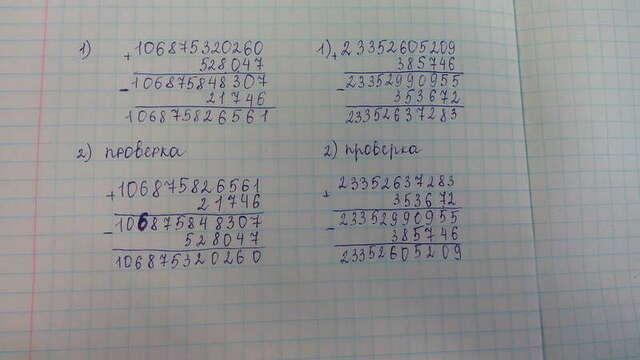 1) + 106875320260
528047
- 106875848307
21746
106875826561
2) проверка
+ 106875826561
21746
- 106875848307
528047
106875320260
1) + 23352605209
385746
- 23352990955
353672
23352637283
2) проверка
+ 23352637283
353672
- 23352990955
385746
23352605209